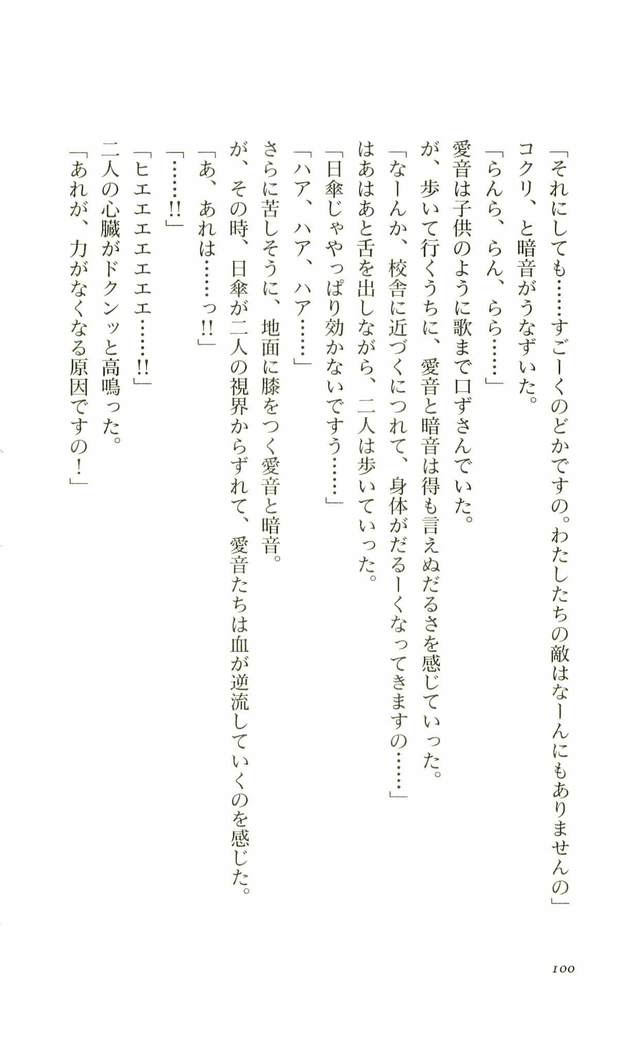 「それにしても……すごーくのどかですの。わたしたちの敵はなーんにもありませんの」
コクリ、と暗音がうなずいた。
「らんら、らん、らら……」
愛音は子供のように歌まで口ずさんでいた。
が、歩いて行くうちに、愛音と暗音は得も言えぬだるさを感じていった。
「なーんか、校舎に近づくにつれて、身体がだるーくなってきますの……」
はあはあと舌を出しながら、二人は歩いていった。
「日傘じゃやっぱり効かないですう……」
「ハア、ハア、ハア……」
さらに苦しそうに、地面に膝をつく愛音と暗音。
が、その時、日傘が二人の視界からずれて、愛音たちは血が逆流していくのを感じた。
「あ、あれは……っ!!」
「……!!」
「ヒエエエエエエエ……!!」
二人の心臓がドクンッと高鳴った。
「あれが、力がなくなる原因ですの！」
100